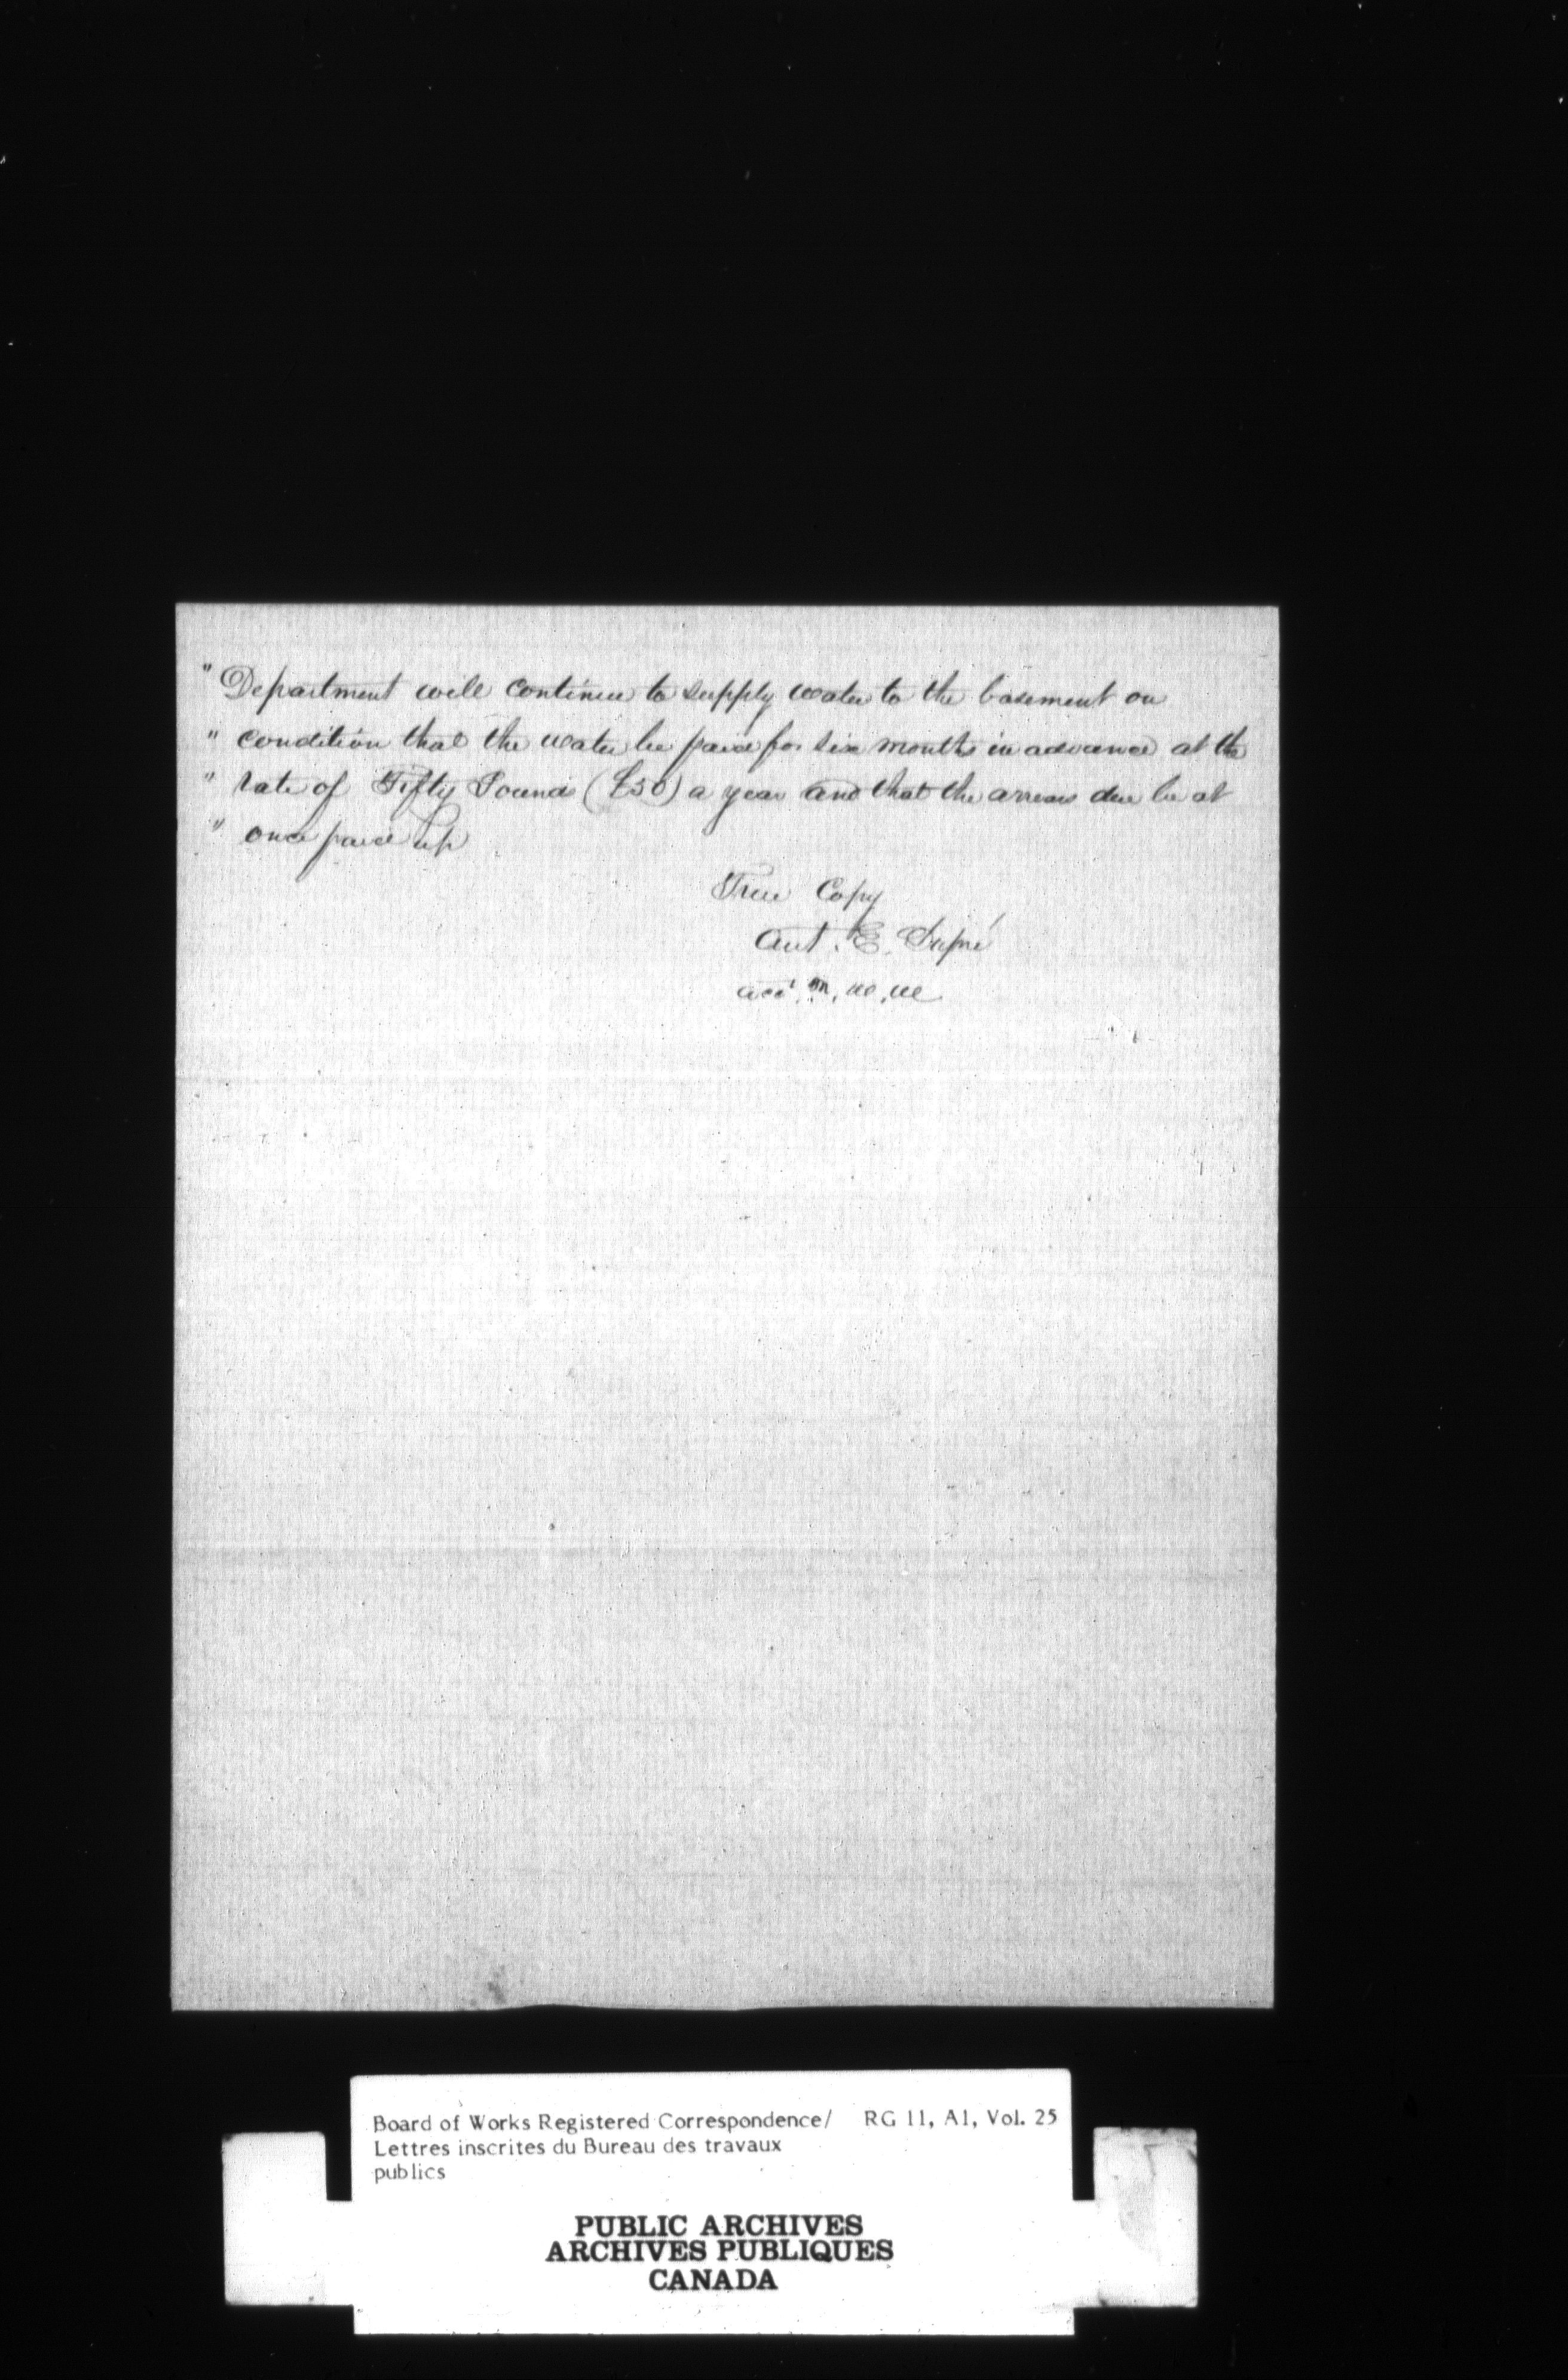 " Department will continue to supply water to the basement on
" condition that the water be paid for six months in advance at the
" rate of Fifty Pounds (£50) a year and that the arrears due be at
" once paid up
True Copy
Ant. E.
acct. M. W. W
Board of Works Registered Correspondence/ RG 11, A1, Vol. 25
Lettres inscrites du Bureau des travaux
publics
PUBLIC ARCHIVES
ARCHIVES PUBLIQUES
CANADA